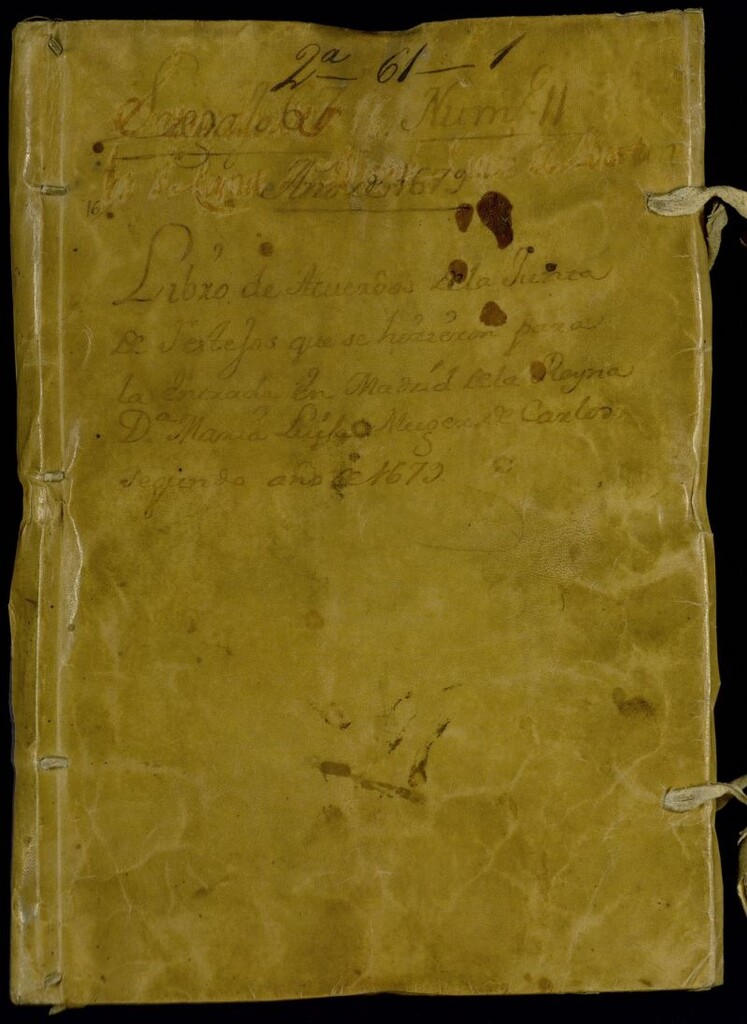 2ª – 61 – 1
Num.º 11
Año de 1679
16
Libro de Acuerdos de la Junta
de Festejos que se hizieron para
la entrada en Madrid de la Reyna
D.ª Maria Luisa Muger de Carlos
segundo año de 1679